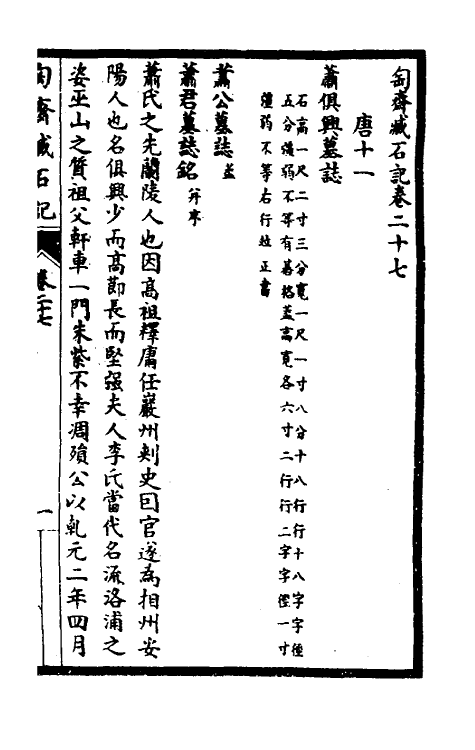 匋齋臧石記卷二十七
唐十一
蕭俱興墓誌
石高一尺二寸三分寬一尺一寸八分十八行行十八字字徑
五分強弱不等有棊格蓋高寬各六寸二行行二字字徑一寸
強弱不等右行竝正書
蕭公墓誌 蓋
蕭君墓誌銘 幷序
蕭氏之先蘭陵人也因高祖釋庸任巖州刾史曰官遂為相州安
陽人也名俱興少而高節長而堅强夫人李氏當代名流洛浦之
姿巫山之質祖父軒車一門朱紫不幸凋殞公以乹元二年四月
匋齋臧石記 卷二十七 一